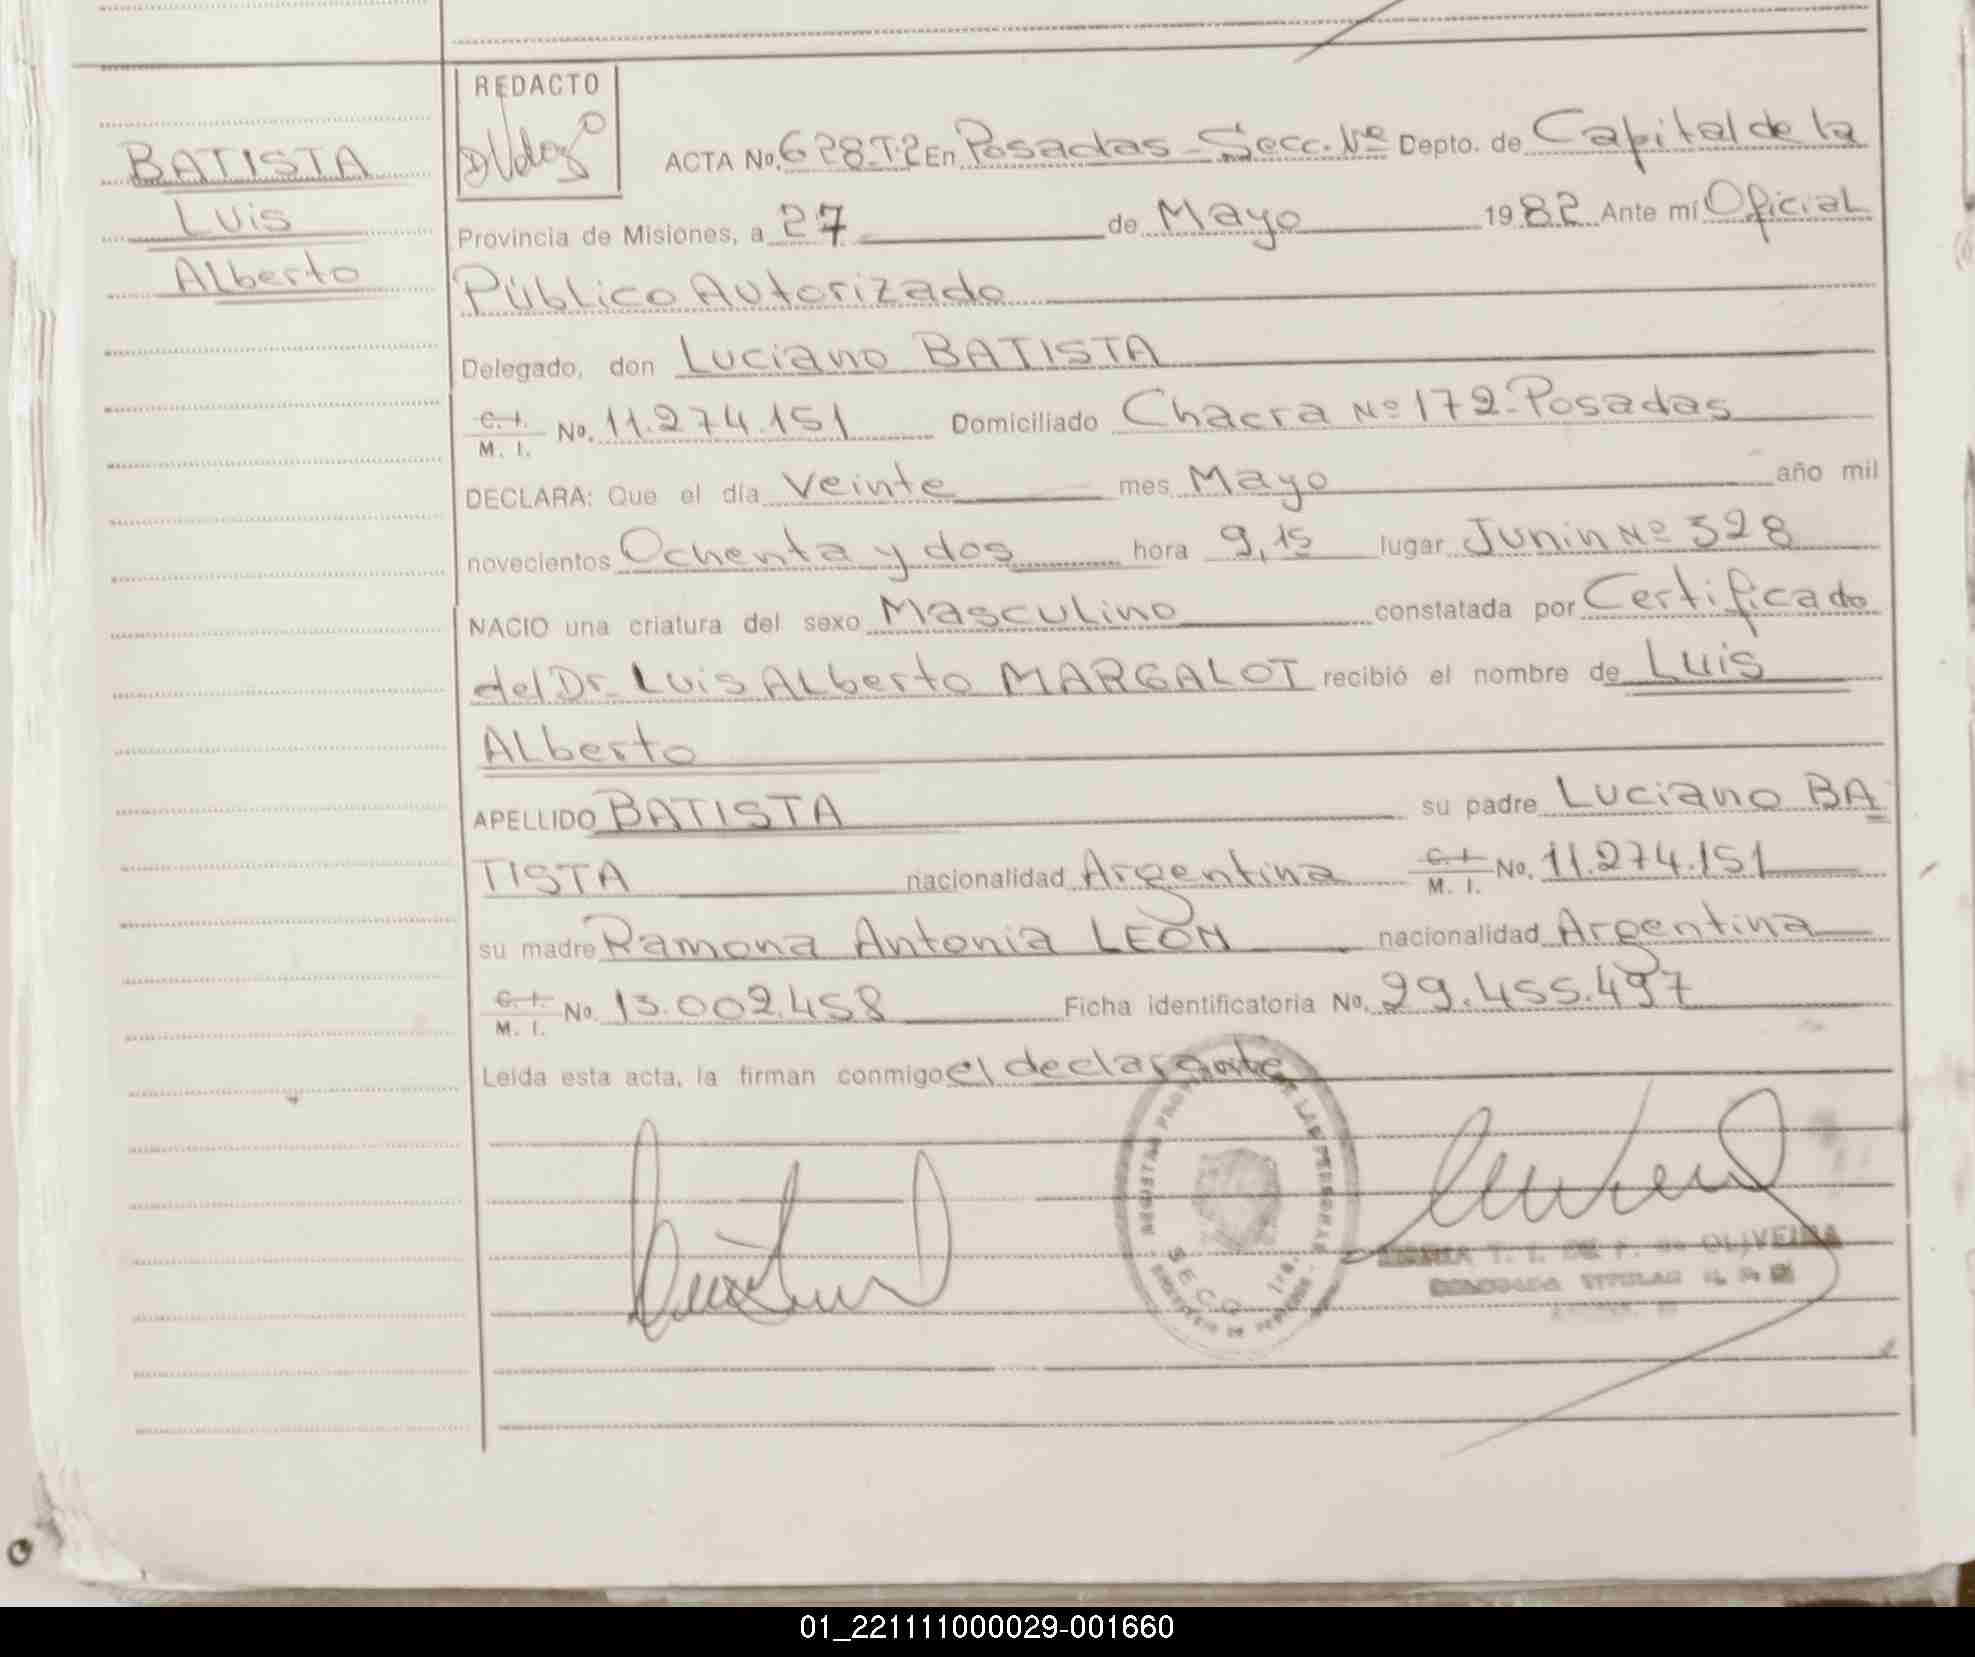 REDACTO
BATISTA
Luis
Alberto
ACTA No. 628.T2 En Posadas - Secc. 1ª Depto. de Capital de la
Provincia de Misiones, a 27 de Mayo 1982 Ante mí Oficial
Público Autorizado
Delegado, don Luciano BATISTA
C. I. / M. I. No. 11.274.151 Domiciliado Chacra Nº 172 - Posadas
DECLARA: Que el día Veinte mes Mayo año mil
novecientos Ochenta y dos hora 9,15 lugar Junin Nº 328
NACIO una criatura del sexo Masculino constatada por Certificado
del Dr. Luis Alberto MARGALOT recibió el nombre de Luis
Alberto
APELLIDO BATISTA su padre Luciano BA
TISTA nacionalidad Argentina C. I. / M. I. No. 11.274.151
su madre Ramona Antonia LEÓN nacionalidad Argentina
C. I. / M. I. No. 13.002.458 Ficha identificatoria No. 29.455.497
Leída esta acta, la firman conmigo el declarante
REGISTRO PROV. DE LAS PERSONAS
SECC. 1ra.
T. I. DE F. de OLIVEIRA
TITULAR
01_221111000029-001660